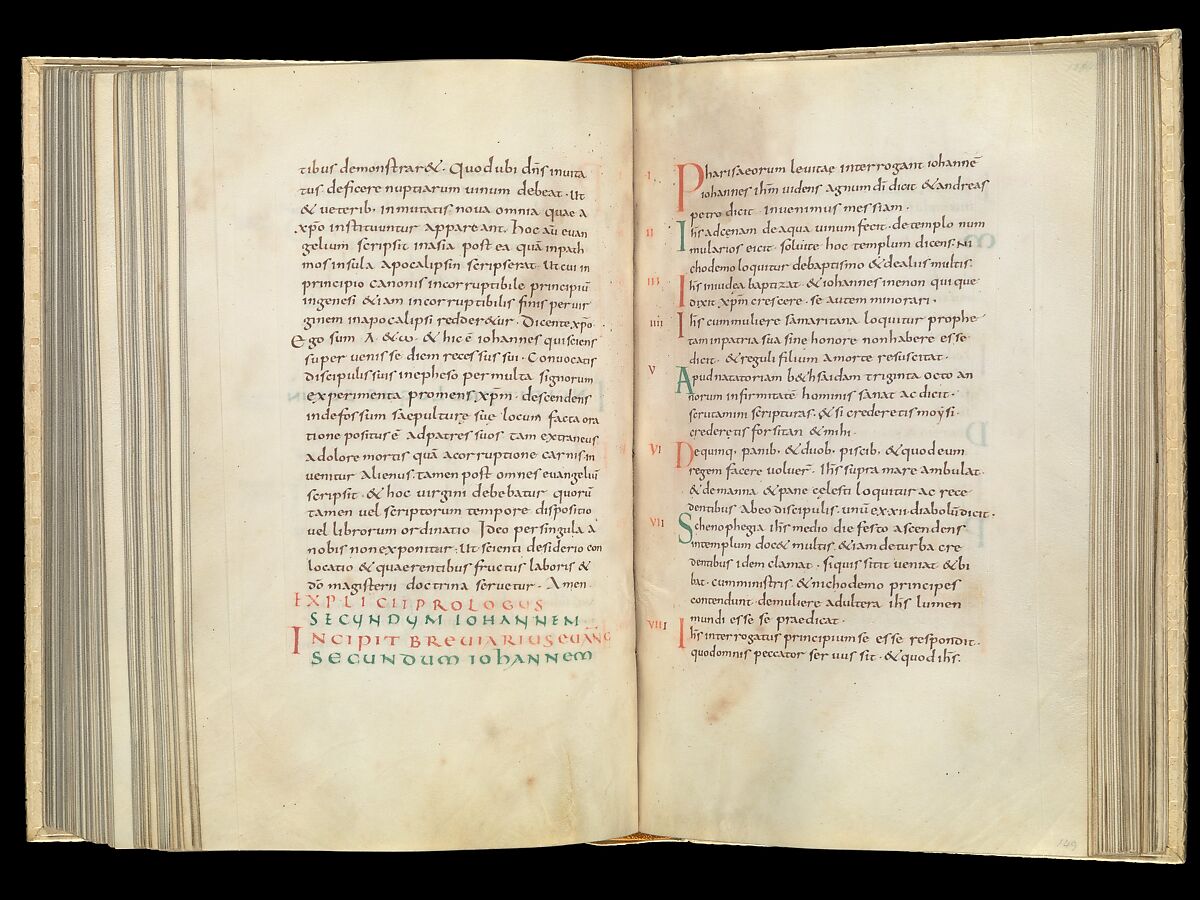 tibus demonstrar&. Quod ubi dñs inuita
tus deficere nuptiarum uinum debeat. Ut
& ueterib; inmutatis nova omnia quae a
xpõ instituuntur appareant. hoc aũ euan
gelium scripsit inasia post ea quã inpath
mos insula apocalipsin scripserat. Ut cui in
principio canonis incorruptibile principiũ
ingenesi &iam incorruptibilis finis per uir
ginem inapocalipsi redder&ur. Dicente xpõ
Ego sum A. &ω. & hic ẽ iohannes qui sciens
super uenisse diem recessus sui. Conuocatis
discipulis suis inepheso per multa signorum
experimenta promens xpm̃. descendens
indefossum saepulturę suę locum facta ora
tione positus ẽ adpatres suos. tam extraneus
adolore mortis quã acorruptione carnis in
uenitur Alienus. tamen post omnes euangeliũ
scripsit. & hoc virgini debebatur quorũ
tamen uel scriptorum tempore dispositio
uel librorum ordinatio Ideo per singula a
nobis non exponitur. Ut scienti desiderio con
locatio & quaerentibus fructus laboris &
dõ magisterii doctrina seruetur. Amen.
EXPLICIT PROLOGUS
SECUNDUM IOHANNEM
INCIPIT BREUIARIUS EUANG
SECUNDUM IOHANNEM
I. Pharisaeorum leuitae interrogant iohannẽ
iohannes ihm̃ uidens agnum dĩ dicit &andreas
petro dicit inuenimus messiam.
II Ihs̃ adcenam deaqua uinum fecit. detemplo num
mularios eicit. soluite hoc templum dicens. NI
chodemo loquitur debaptismo &dealiis multis.
III Ihs̃ iniudea baptizat. &iohannes inenon qui que
dixit xpm̃ crescere. se autem minorari.
IIII Ihs̃ cum muliere samaritana loquitur prophe
tam inpatria sua sine honore nonhabere esse
dicit. &reguli filium amorte resuscitat.
V Apud natatoriam b&hsaidam triginta octo an
norum infirmitatẽ hominis sanat ac dicit.
scrutamini scripturas. &si crederetis moysi.
crederetis forsitan &mihi.
VI Dequinq; panib; &duob; piscib; &quodeum
regem facere voluer̃. Ihs̃ supra mare ambulat.
&demanna &pane cęlesti loquitur ac rece
dentibus abeo discipulis. unũ ex xii diabolũ dicit.
VII Schenophegia ihs̃ medio die festo ascendens
intemplum doc& multis. &iam deturba cre
dentibus idem clamat. siquis sitit ueniat &bi
bat. cumministris &nichodemo principes
contendunt. demuliere adultera ihs̃ lumen
mundi esse se praedicat.
VIII Ihs̃ interrogatus principium se esse respondit.
quodomnis peccator seruus sit. &quod ihs̃.
149